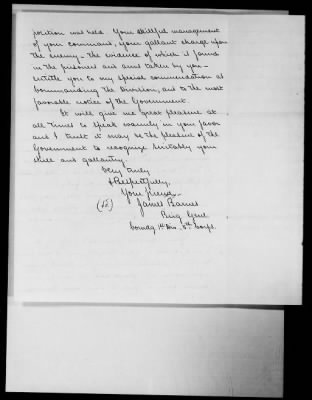 position was held. Your skillful management
of your command, your gallant charge upon
the enemy - the evidence of which I found
in the prisoners and arms taken by you -
entitle you to my special commendation as
Commanding the Division, and to the most
favorable notice of the Government.
It will give me great pleasure at
all times to speak warmly in your favor
and I trust it may be the pleasure of the
Government to recognize suitably your
skill and gallantry.
Very truly
& Respectfully,
Your friend -
James Barnes
Brig Genl
Comdg 1st Div. 5th Corps.